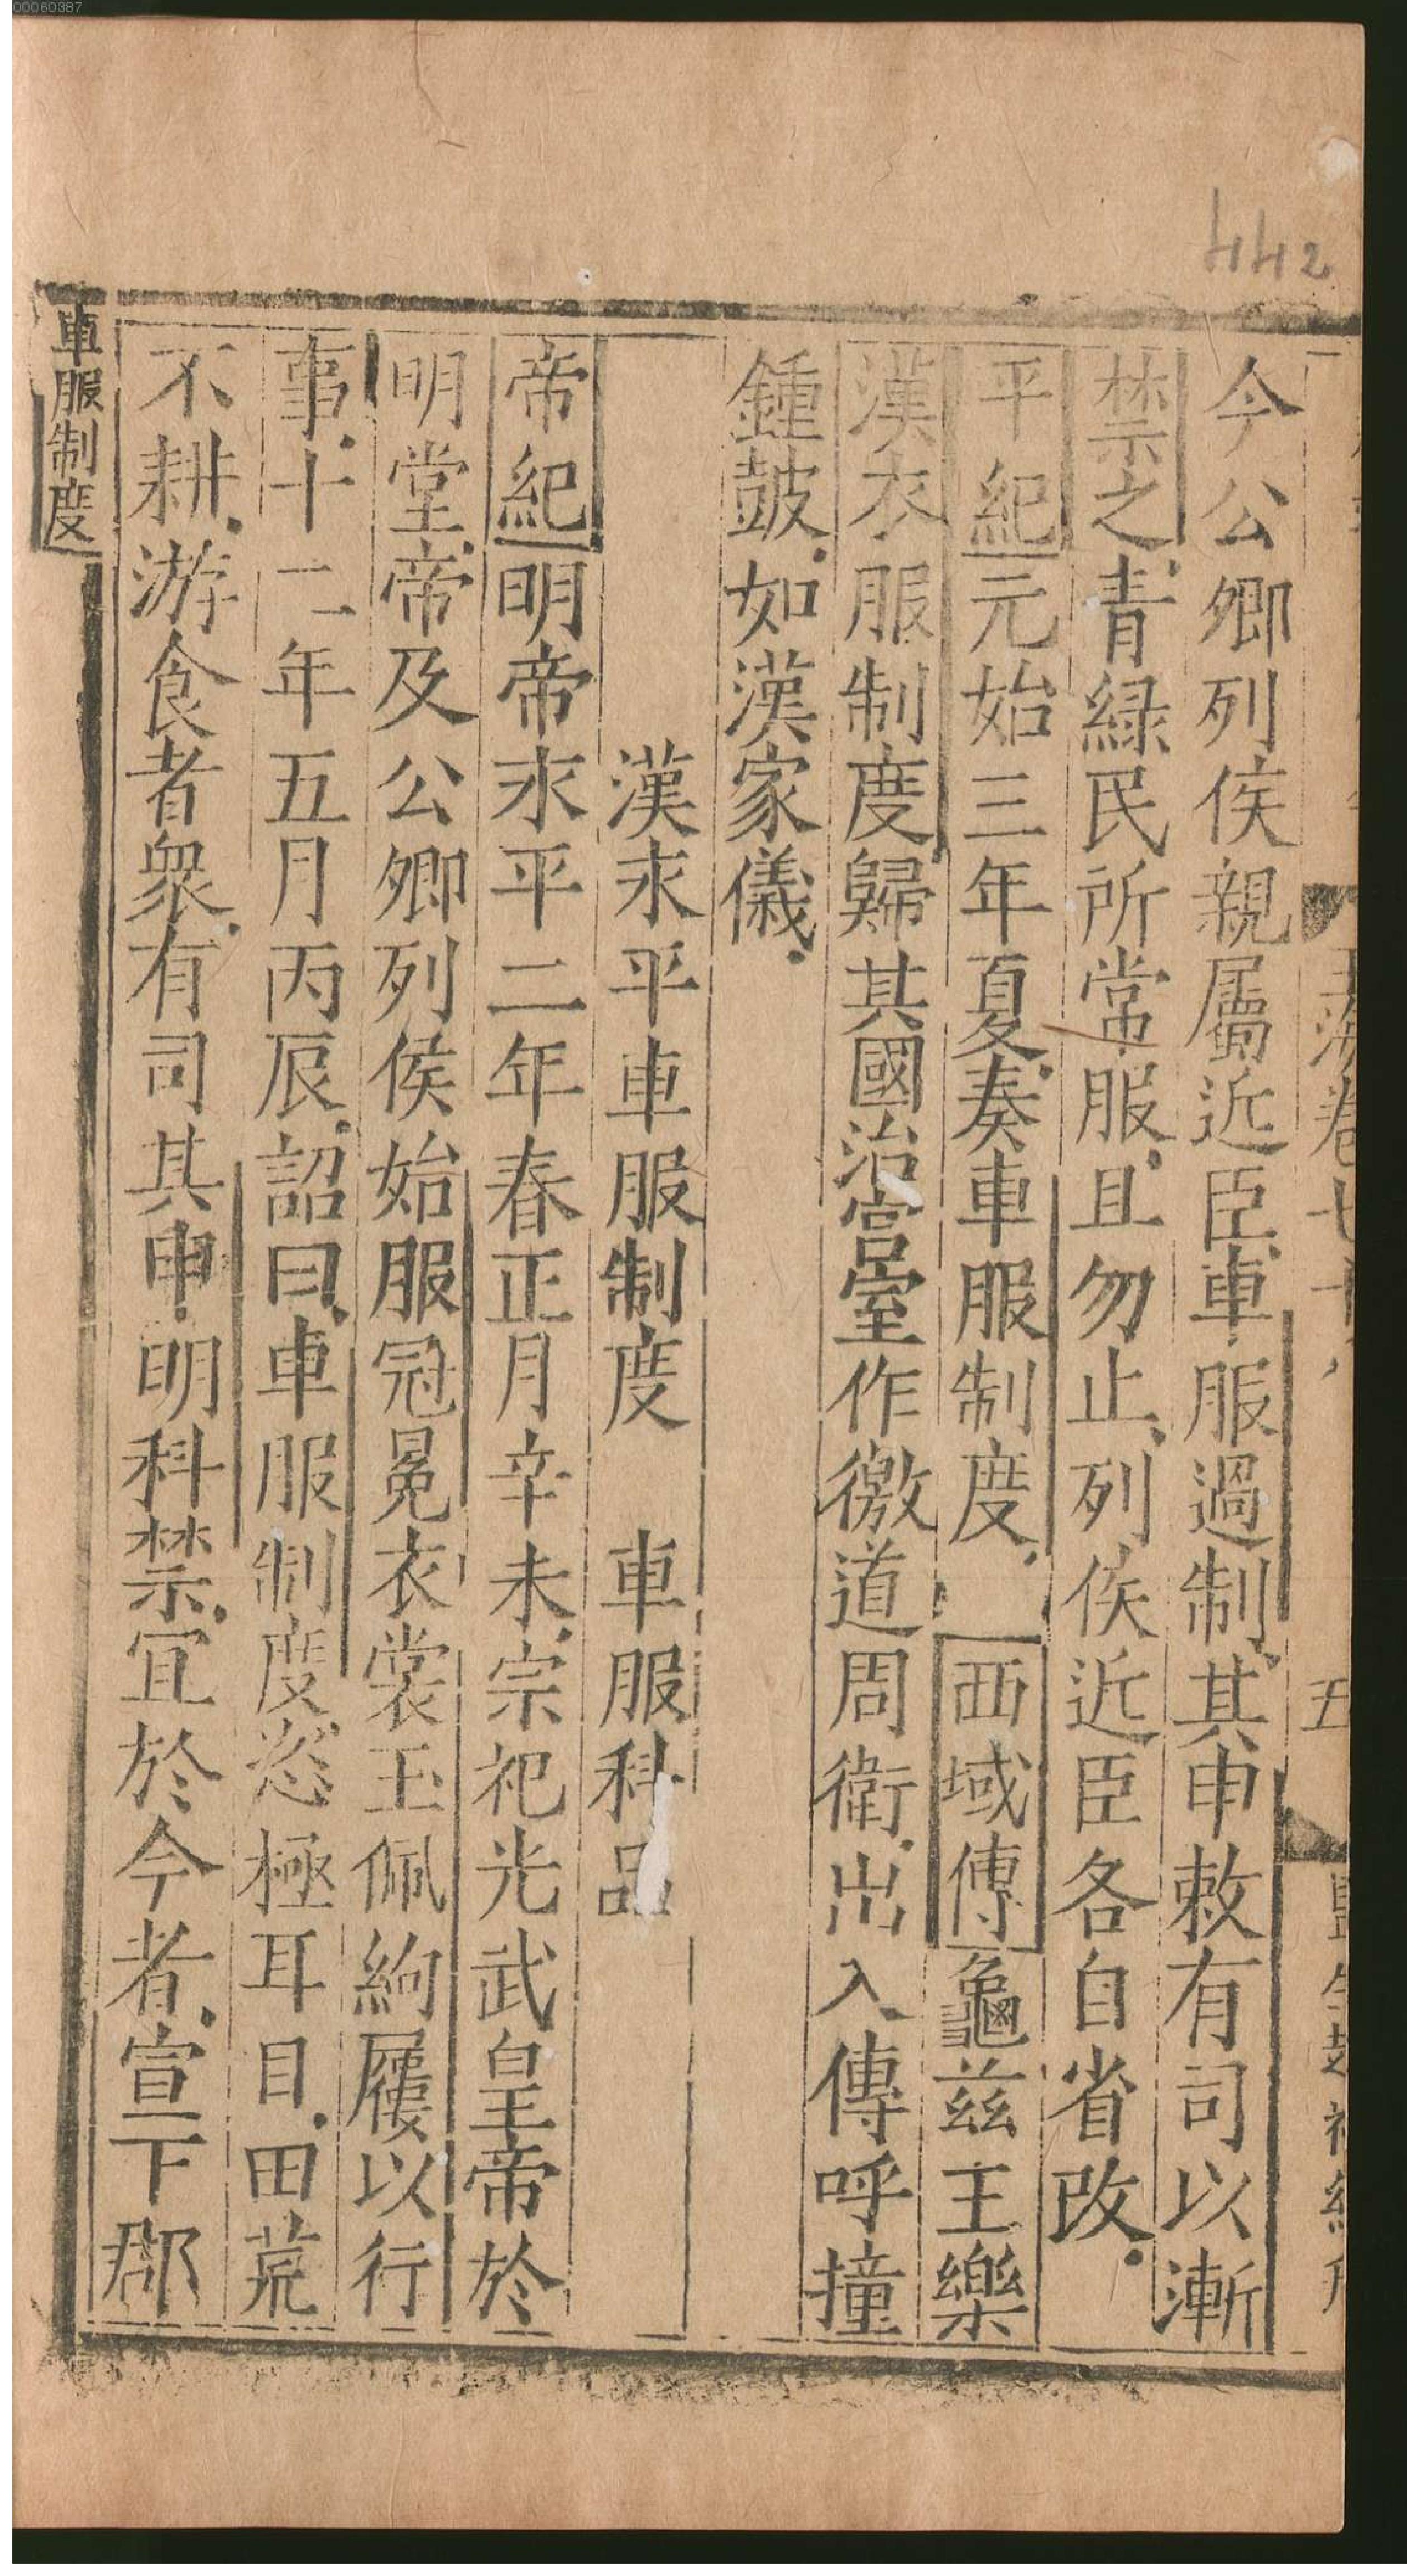 00060387
442
今公卿列侯親屬近臣車服過制其申敕有司以漸
禁之青緑民所常服且勿止列侯近臣各自省改
平紀元始三年夏奏車服制度西域傳龜兹王樂
漢衣服制度歸其國治宫室作徼道周衛出入傳呼撞
鍾鼓如漢家儀
漢永平車服制度　車服科品
帝紀明帝永平二年春正月辛未宗祀光武皇帝於
明堂帝及公卿列侯始服冠冕衣裳玉佩絇屨以行
事十二年五月丙辰詔曰車服制度恣極耳目田荒
不耕游食者衆有司其申明科禁宜於今者宣下郡
車服制度